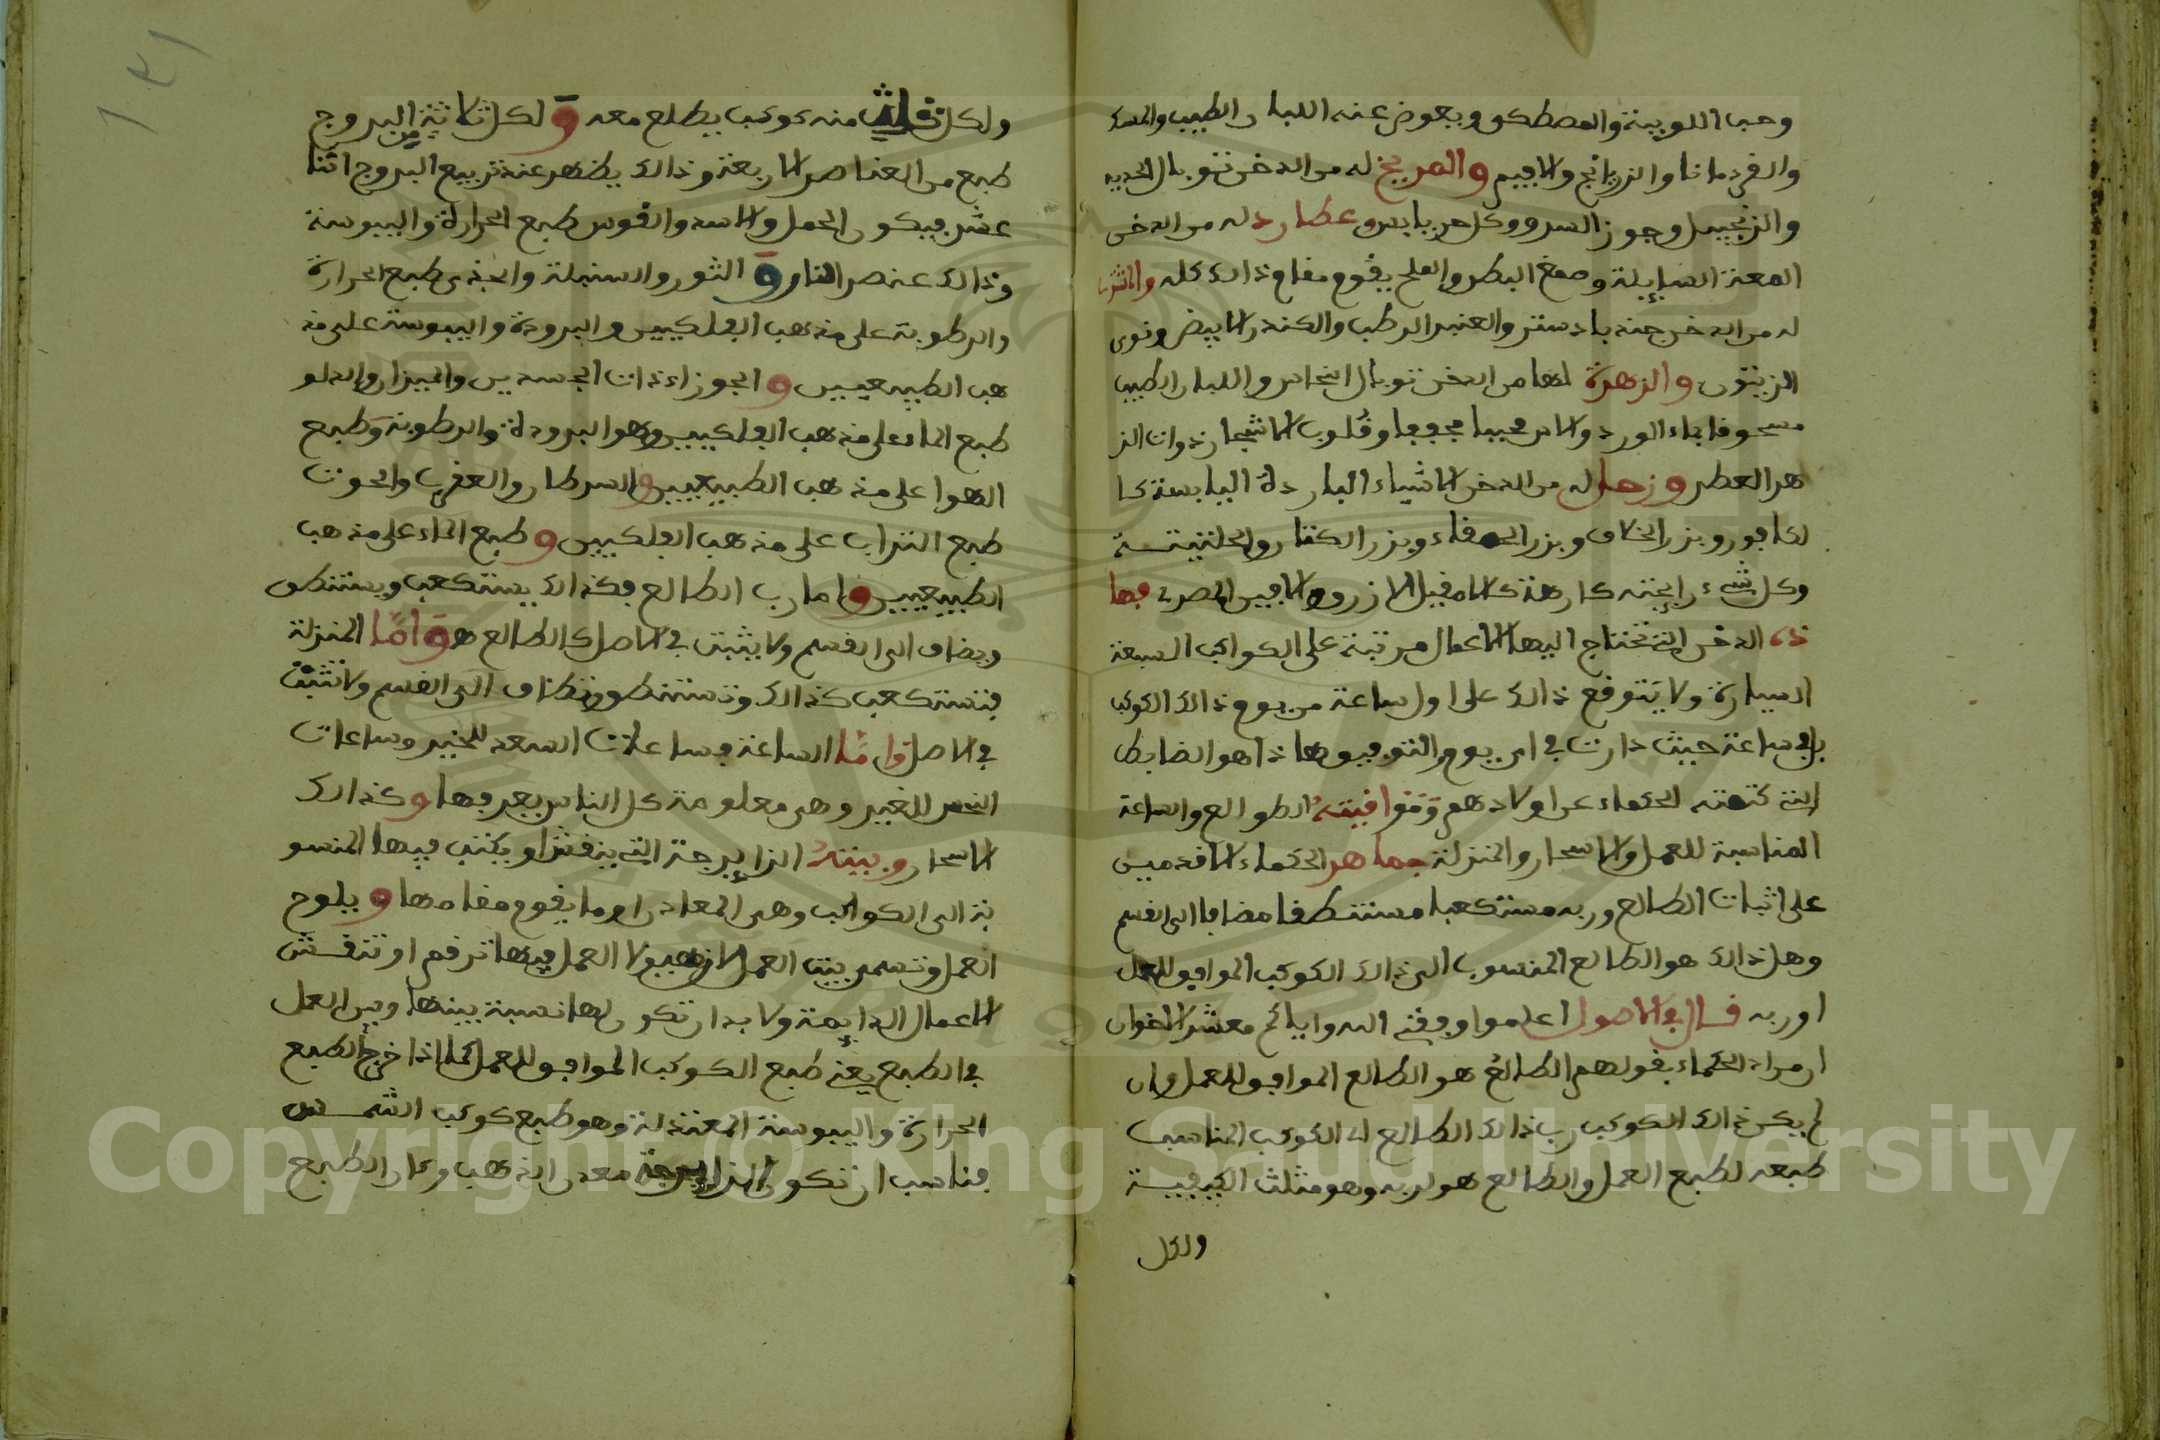 وحب اللوبينة والمصطكى ويعوض عنه اللبان الطيب والمسك
والقردمانا والزرنانج والافيم والمريخ له من الدخن توبال الحديد
والزنجبيل وجوز السرو وكل حر يابس وعطارد له من الدخن
المعتة السايلة وصمغ البطم والعلج يقوم مقام ذالك كله والمشتر
له من الدخن جند بادستر والعنبر الرطب والكندر الابيض ونوى
الزيتون والزهرة لها من الدخن توبال النحاس واللبان الطيب
مسحوقا بماء الورد والاس مجببا مجففا وقلوب الاشجار ذوات الز
هر العطر وزحل له من الدخن الاشياء الباردة اليابسة كا
لكافور وبزر الخلاف وبزر الحمقاء وبزر الكتان والحلتيتة
وكل شيء رايحته كارهة كالمقيل الازرق والافيون المصري فها
ذه الدخن التي تحتاج اليها الاعمال مرتبة على الكواكب السبعة
السيارة ولا يتوقع ذالك على اول ساعة من يوم ذالك الكوكب
بل في ساعة حيث دارت في اي يوم والتوفيق وهاذا هو الضابط
التي كتمته الحكماء عن اولادهم وتوافيته الطوالع والساعة
المناسبة للعمل والاسحار والمنزلة جماهر الحكماء الاقدمين
على اثبات الطالع وربه مستكعبا مستنطقا مضافا الى القسم
وهل ذالك هو الطالع المنسوب الى ذالك الكوكب الموافق للعمل
او ربه قال في الاصول اعلموا وفقني الله واياكم معشر الاخوان
ان مراد الحكماء بقولهم الطالع هو الطالع الموافق للعمل وان
لم يكن ذالك الكوكب رب ذالك الطالع اي الكوكب المناسب
طبعه لطبع العمل والطالع هو لربه وهو مثلث الكيفية
ولكل
ولكل ثلث منه كوكب يطلع معه ولكل ثلاثة من البروج
طبع من العناصر الاربعة وذالك يظهر عند تربيع البروج اثنا
عشر فيكون الحمل والاسد والقوس طبع الحرارة واليبوسة
وذالك عنصر النار والثور والسنبلة والجدي طبع الحرارة
والرطوبة على مذهب الفلكيين والبرودة واليبوسة على مذ
هب الطبيعيين والجوزاء ذات الجسدين والميزان والدلو
طبع الماء على مذهب الفلكيين وهو البرودة والرطوبة وطبع
الهوا على مذهب الطبيعيين والسرطان والعقرب والحوت
طبع التراب على مذهب الفلكيين وطبع الماء على مذهب
الطبيعيين واما رب الطالع فكذالك يستكعب ويستنطق
ويضاف الى القسم ولا يثبت في الاصل كالطالع هو واما المنزلة
فتستكعب كذالك وتستنطق وتضاف الى القسم ولا تثبت
في الاصل واما الساعة فساعات السعد للخير وساعات
النحس للغير وهي معلومة كل الناس يعرفها وكذالك
الاسحار وبيته الزايرجة التي ينقش او يكتب فيها المنسو
بة الى الكواكب وهي المعادن او ما يقوم مقامها ويلوح
العمل وتسمى بيت العمل لان هيولا العمل فيها ترقم او تنقش
الاعمال الدايمة ولا بد ان تكون لها نسبة بينها وبين العمل
في الطبع يعني طبع الكوكب الموافق للعمل كما اذا خرج الطبع
الحرارة واليبوسة المعتدلة وهو طبع كوكب الشمس
فناسب ان تكون الزايرجة معدن الذهب وكان الطبع